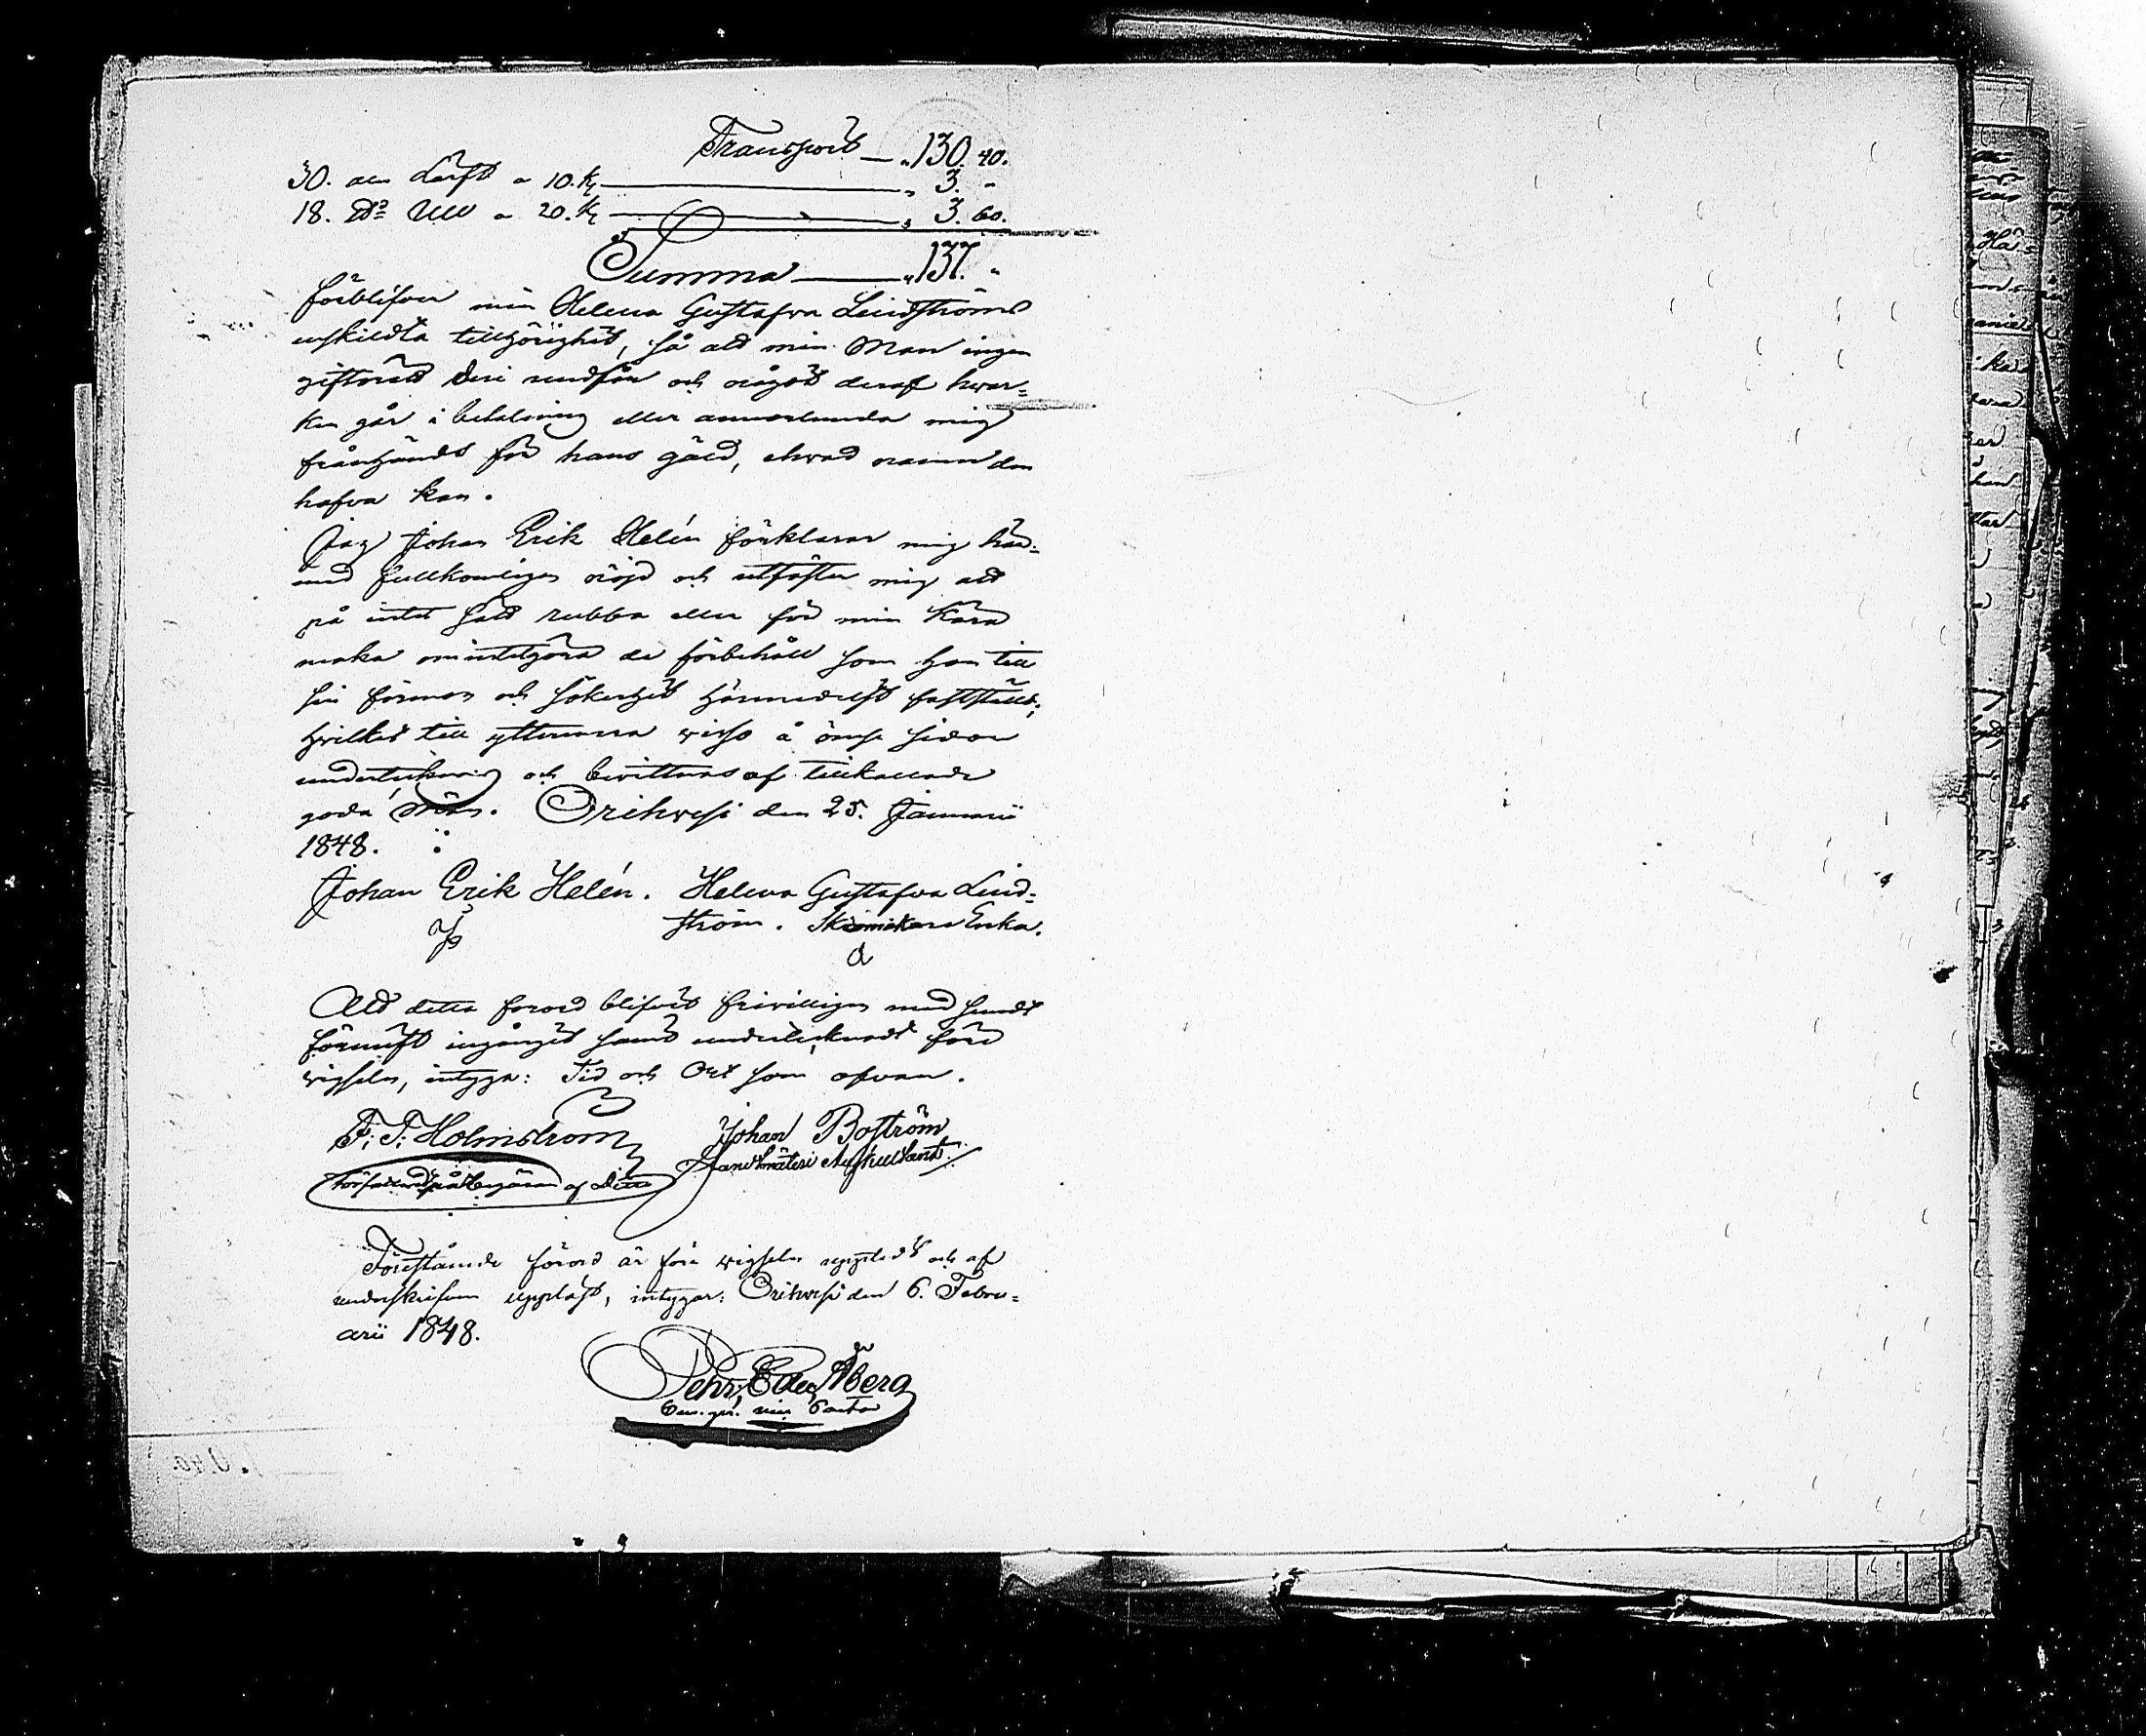 Transport — „ 130. 40.
30. aln Lärft a 10. K. — „ 3. „
18. D:o Ull a 20. K. — „ 3. 60.
Summa — „ 137. „
förblifver min Helena Gustafva Lindströms
enskildta tillhörighet, så att min Man ingen
giftorätt deri undfår och något deraf hvar-
ken går i betalning eller annorlunda mig
frånhändt för hans gäld, ehvad namn den
hafva kan.
Jag Johan Erik Helén förklarar mig här-
med fullkomligen nöjd och utfäster mig att
på intet sätt rubba eller för min Kära
maka omintetgöra de förbehåll som hon till
sin förmon och säkerhet härmedelst fastställt;
hvilket till yttermera visso å ömse sidor
underteckning och bevittnas af tillkallade
goda Män. Orihvesi den 25. Januarii
1848.
Johan Erik Helén. Helena Gustafva Lind-
ström. Enka.
Att detta förord blifvit frivilligen med sundt
förnuft ingånget samt undertecknadt före
vigseln, intyga: Tid och Ort som ofvan.
F. T. Holmström Johan Boström
Författadt på begäran af Ditto Landtmäteri Auskultant
Förestående förord är före vigseln uppvist och af
underskrifven uppläst, intygar: Orihvesi den 6. Febru-
arii 1848.
Pehr Edv Åberg